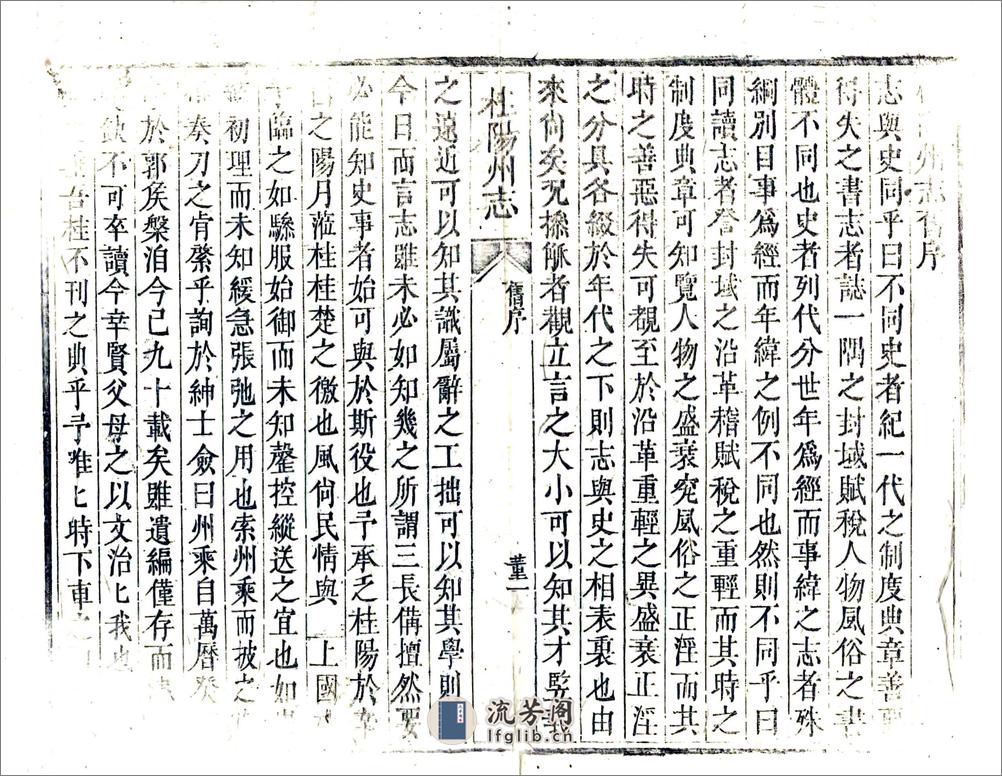 州志舊序
志與史同乎曰不同史者紀一代之制度典章善惡
得失之書志者誌一隅之封域賦稅人物風俗之書
體不同也史者列代分世年爲經而事緯之志者殊
綱別目事爲經而年緯之例不同也然則不同乎曰
同讀志者於封域之沿革稽賦稅之重輕而其時之
制度典章可知覽人物之盛衰究風俗之正淫而其
時之善惡得失可覩至於沿革重輕之異盛衰正淫
之分具各綴於年代之下則志與史之相表裏也由
來尚矣況操觚者觀立言之大小可以知其才
桂陽州志
舊序
董一
之遠近可以知其識屬辭之工拙可以知其學則
今日而言志雖未必如知幾之所謂三長備擅然要
必能知史事者始可與於斯役也予承乏桂陽於
之陽月蒞桂桂楚之徼也風尚民情與 上國
臨之如驂服始御而未知罄控縱送之宜也如
初理而未知緩急張弛之用也索州乘而披之
奏刀之肯綮乎詢於紳士僉曰州乘自萬曆癸
於郭侯槃洎今已九十載矣雖遺編僅存而
不可卒讀今幸賢父母之以文治匕我也
吾桂不刊之典乎予唯匕時下車之
流芳阁
lfglib.cn